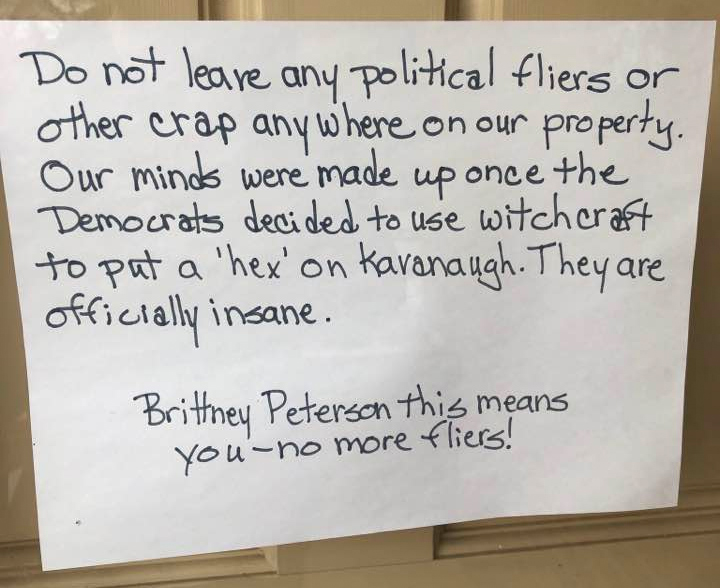 Do not leave any political fliers or
other crap anywhere on our property.
Our minds were made up once the
Democrats decided to use witchcraft
to put a 'hex' on Kavanaugh. They are
officially insane.
Brittney Peterson this means
you-no more fliers!